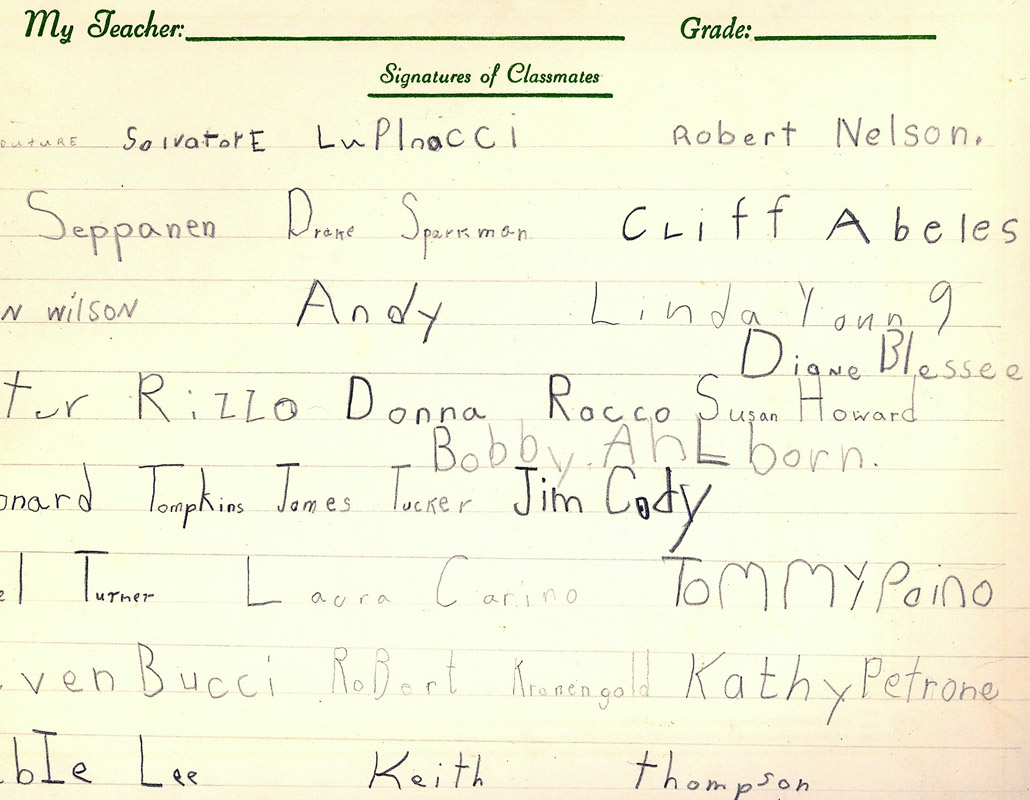 My Teacher: Grade:
Signatures of Classmates
outure SalvatorE LuPInaCCi Robert Nelson.
Seppanen Drake Sparkman CLiff Abeles
N wilsoN Andy Linda Young
Diane Blessee
ter RizZo Donna Rocco Susan Howard
Bobby. AhLborn.
onard Tompkins James Tucker Jim Cody
el Turner Laura Carino ToMMY Paino
ven Bucci RoBert Kronengold Kathy Petrone
bIe Lee Keith thompson